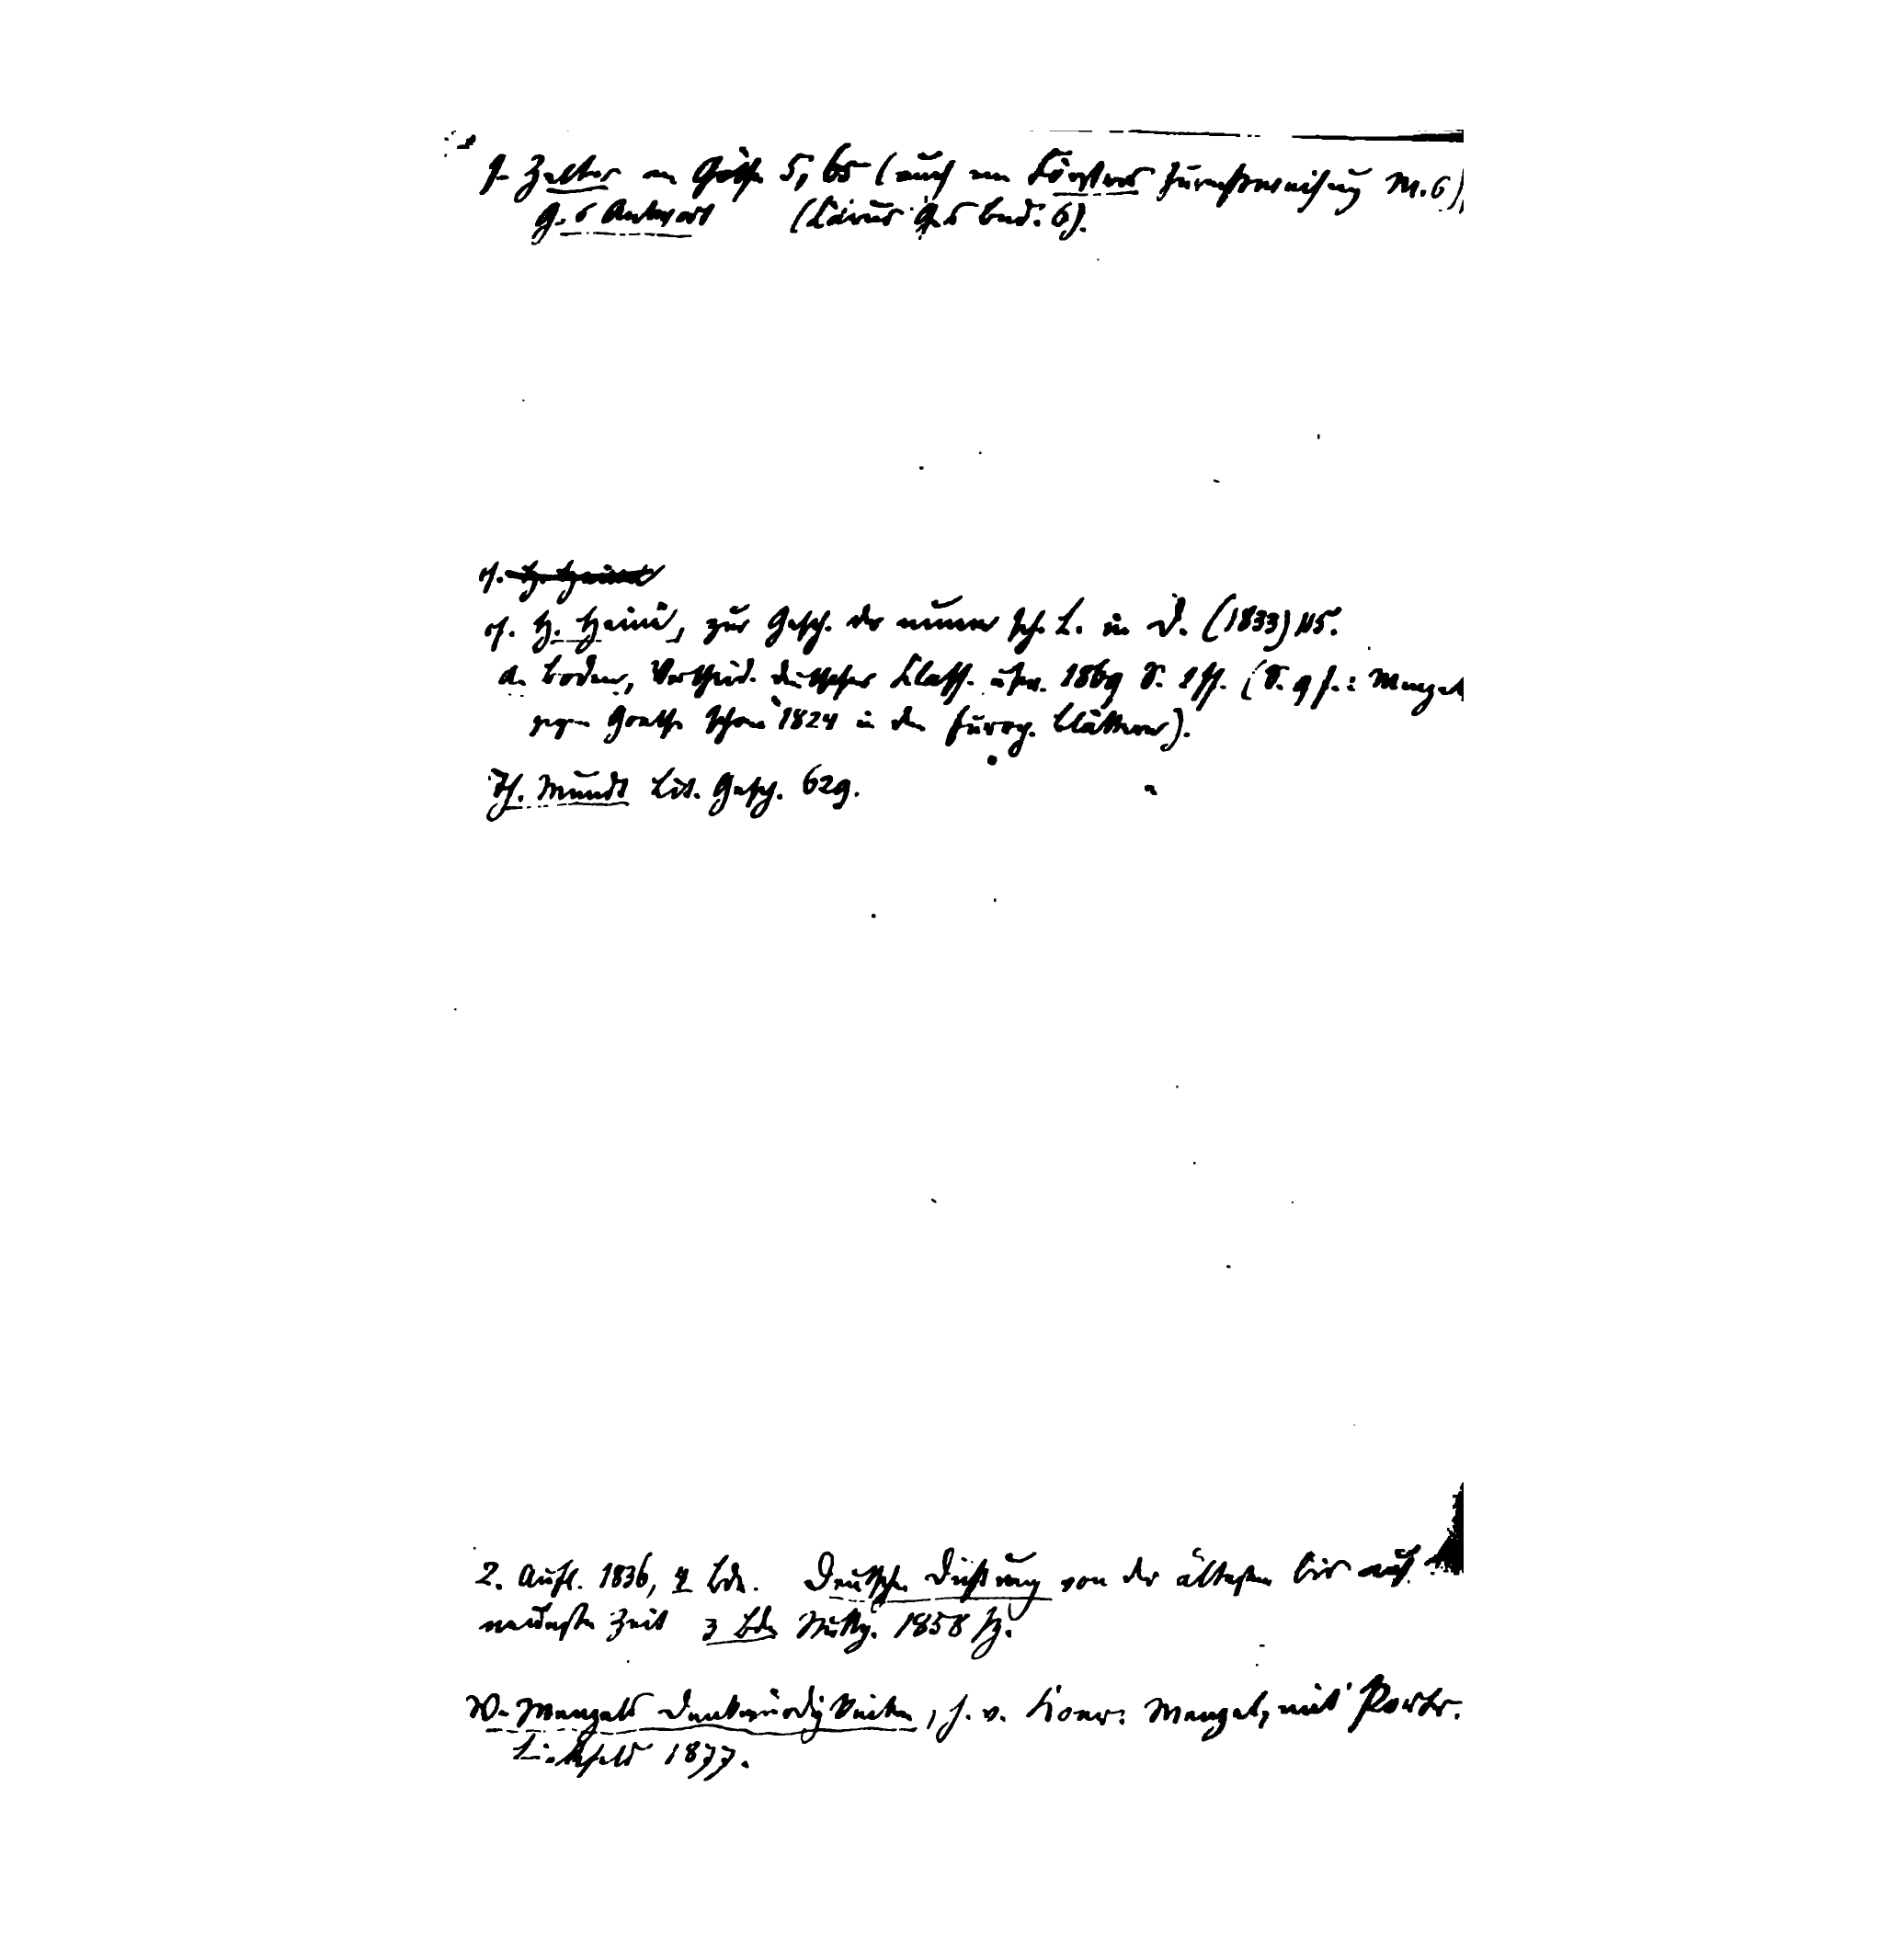 f. Zelter an Göthe 5, 65 (auch von Försters Zurechtweisung M.s)
G.s Antwort
f. H. Heine, zur Gesch. der neuern sch. L. in D. (1833) 115.
A. Boden, Vertheid. deutscher Klass. 1869 S. 1 ff. (S. 9 f.: Menzel
gegen Goethe schon 1824 in den Europ. Blättern).
Th. Mundt Lit. Gesch. 629.
2. Aufl. 1836, 4 Bde. Deutsche Dichtung von der ältesten bis auf die
neueste Zeit 3 Bde Stuttg. 1858 f.
W. Menzels Denkwürdigkeiten, h. v. Konr. Menzel, mit Portr.
Bielefeld 1877.